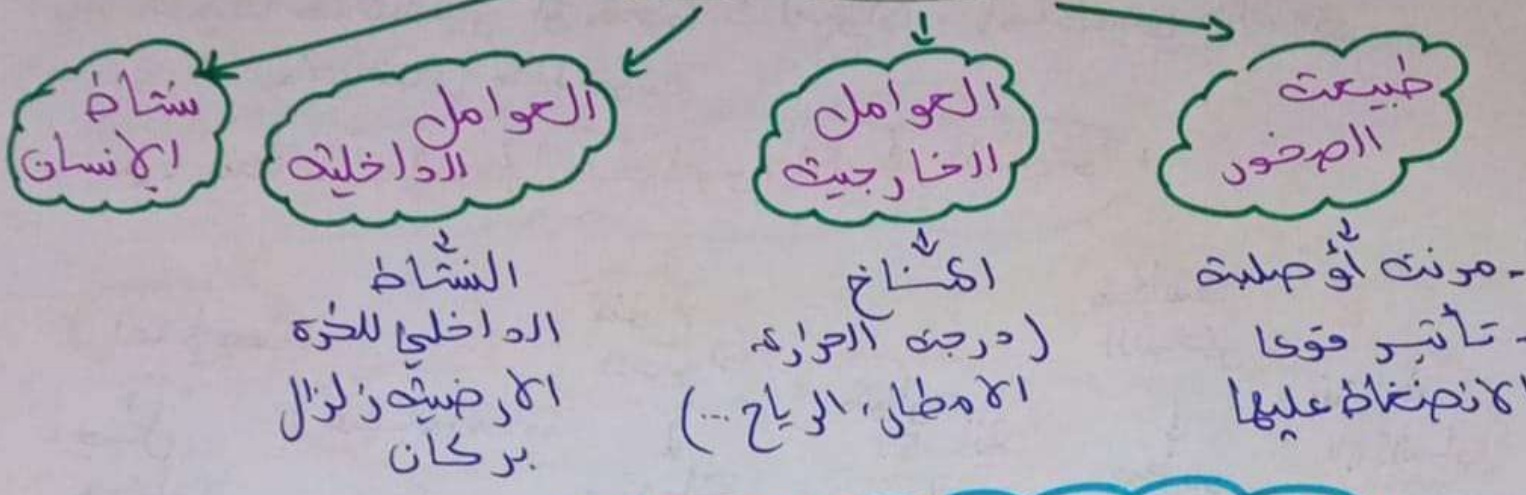 طبيعة
الصخور
- مرنة أو صلبة
- تأثير قوى
الانضغاط عليها
العوامل
الخارجية
المناخ
(درجة الحرارة
الامطار، الرياح...)
العوامل
الداخلية
النشاط
الداخلي للكرة
الارضية زلزال
بركان
نشاط
الإنسان